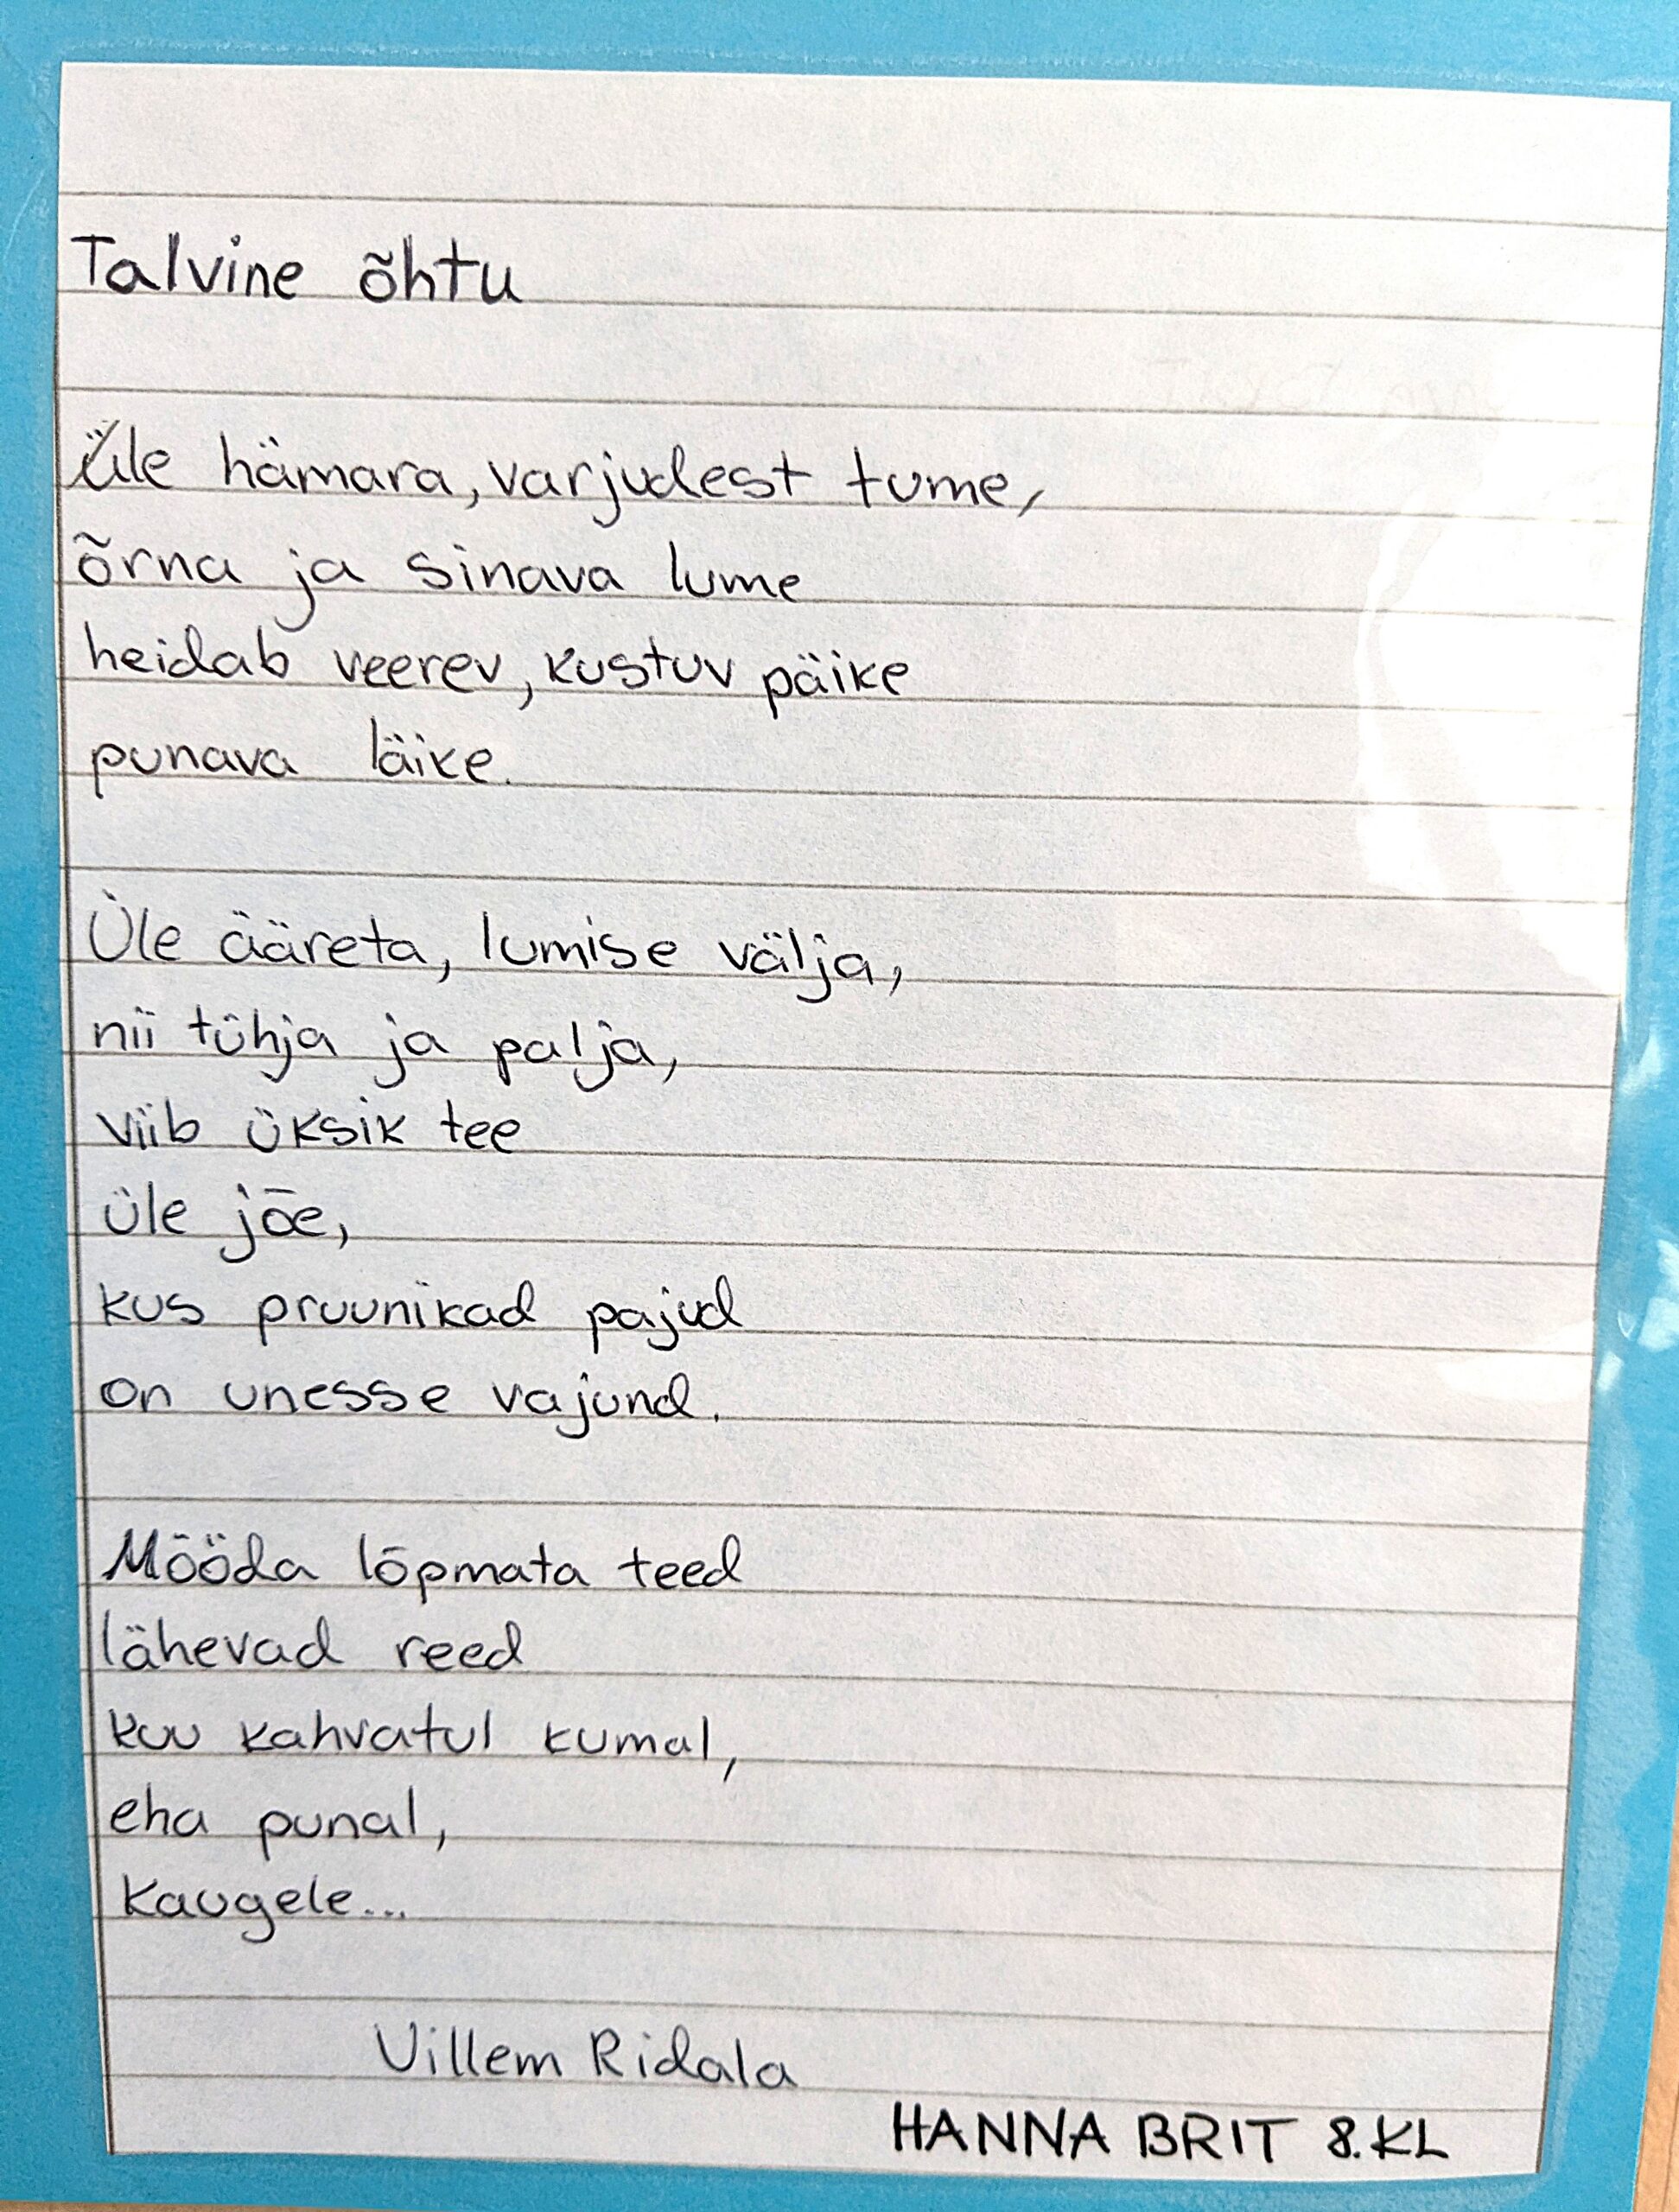 Talvine õhtu
Üle hämara, varjudest tume,
õrna ja sinava lume
heidab veerev, kustuv päike
punava läike.
Üle ääreta, lumise välja,
nii tühja ja palja,
viib üksik tee
üle jõe,
kus pruunikad pajud
on unesse vajund.
Mööda lõpmata teed
lähevad reed
kuu kahvatul kumal,
eha punal,
kaugele...
Villem Ridala
HANNA BRIT 8.KL